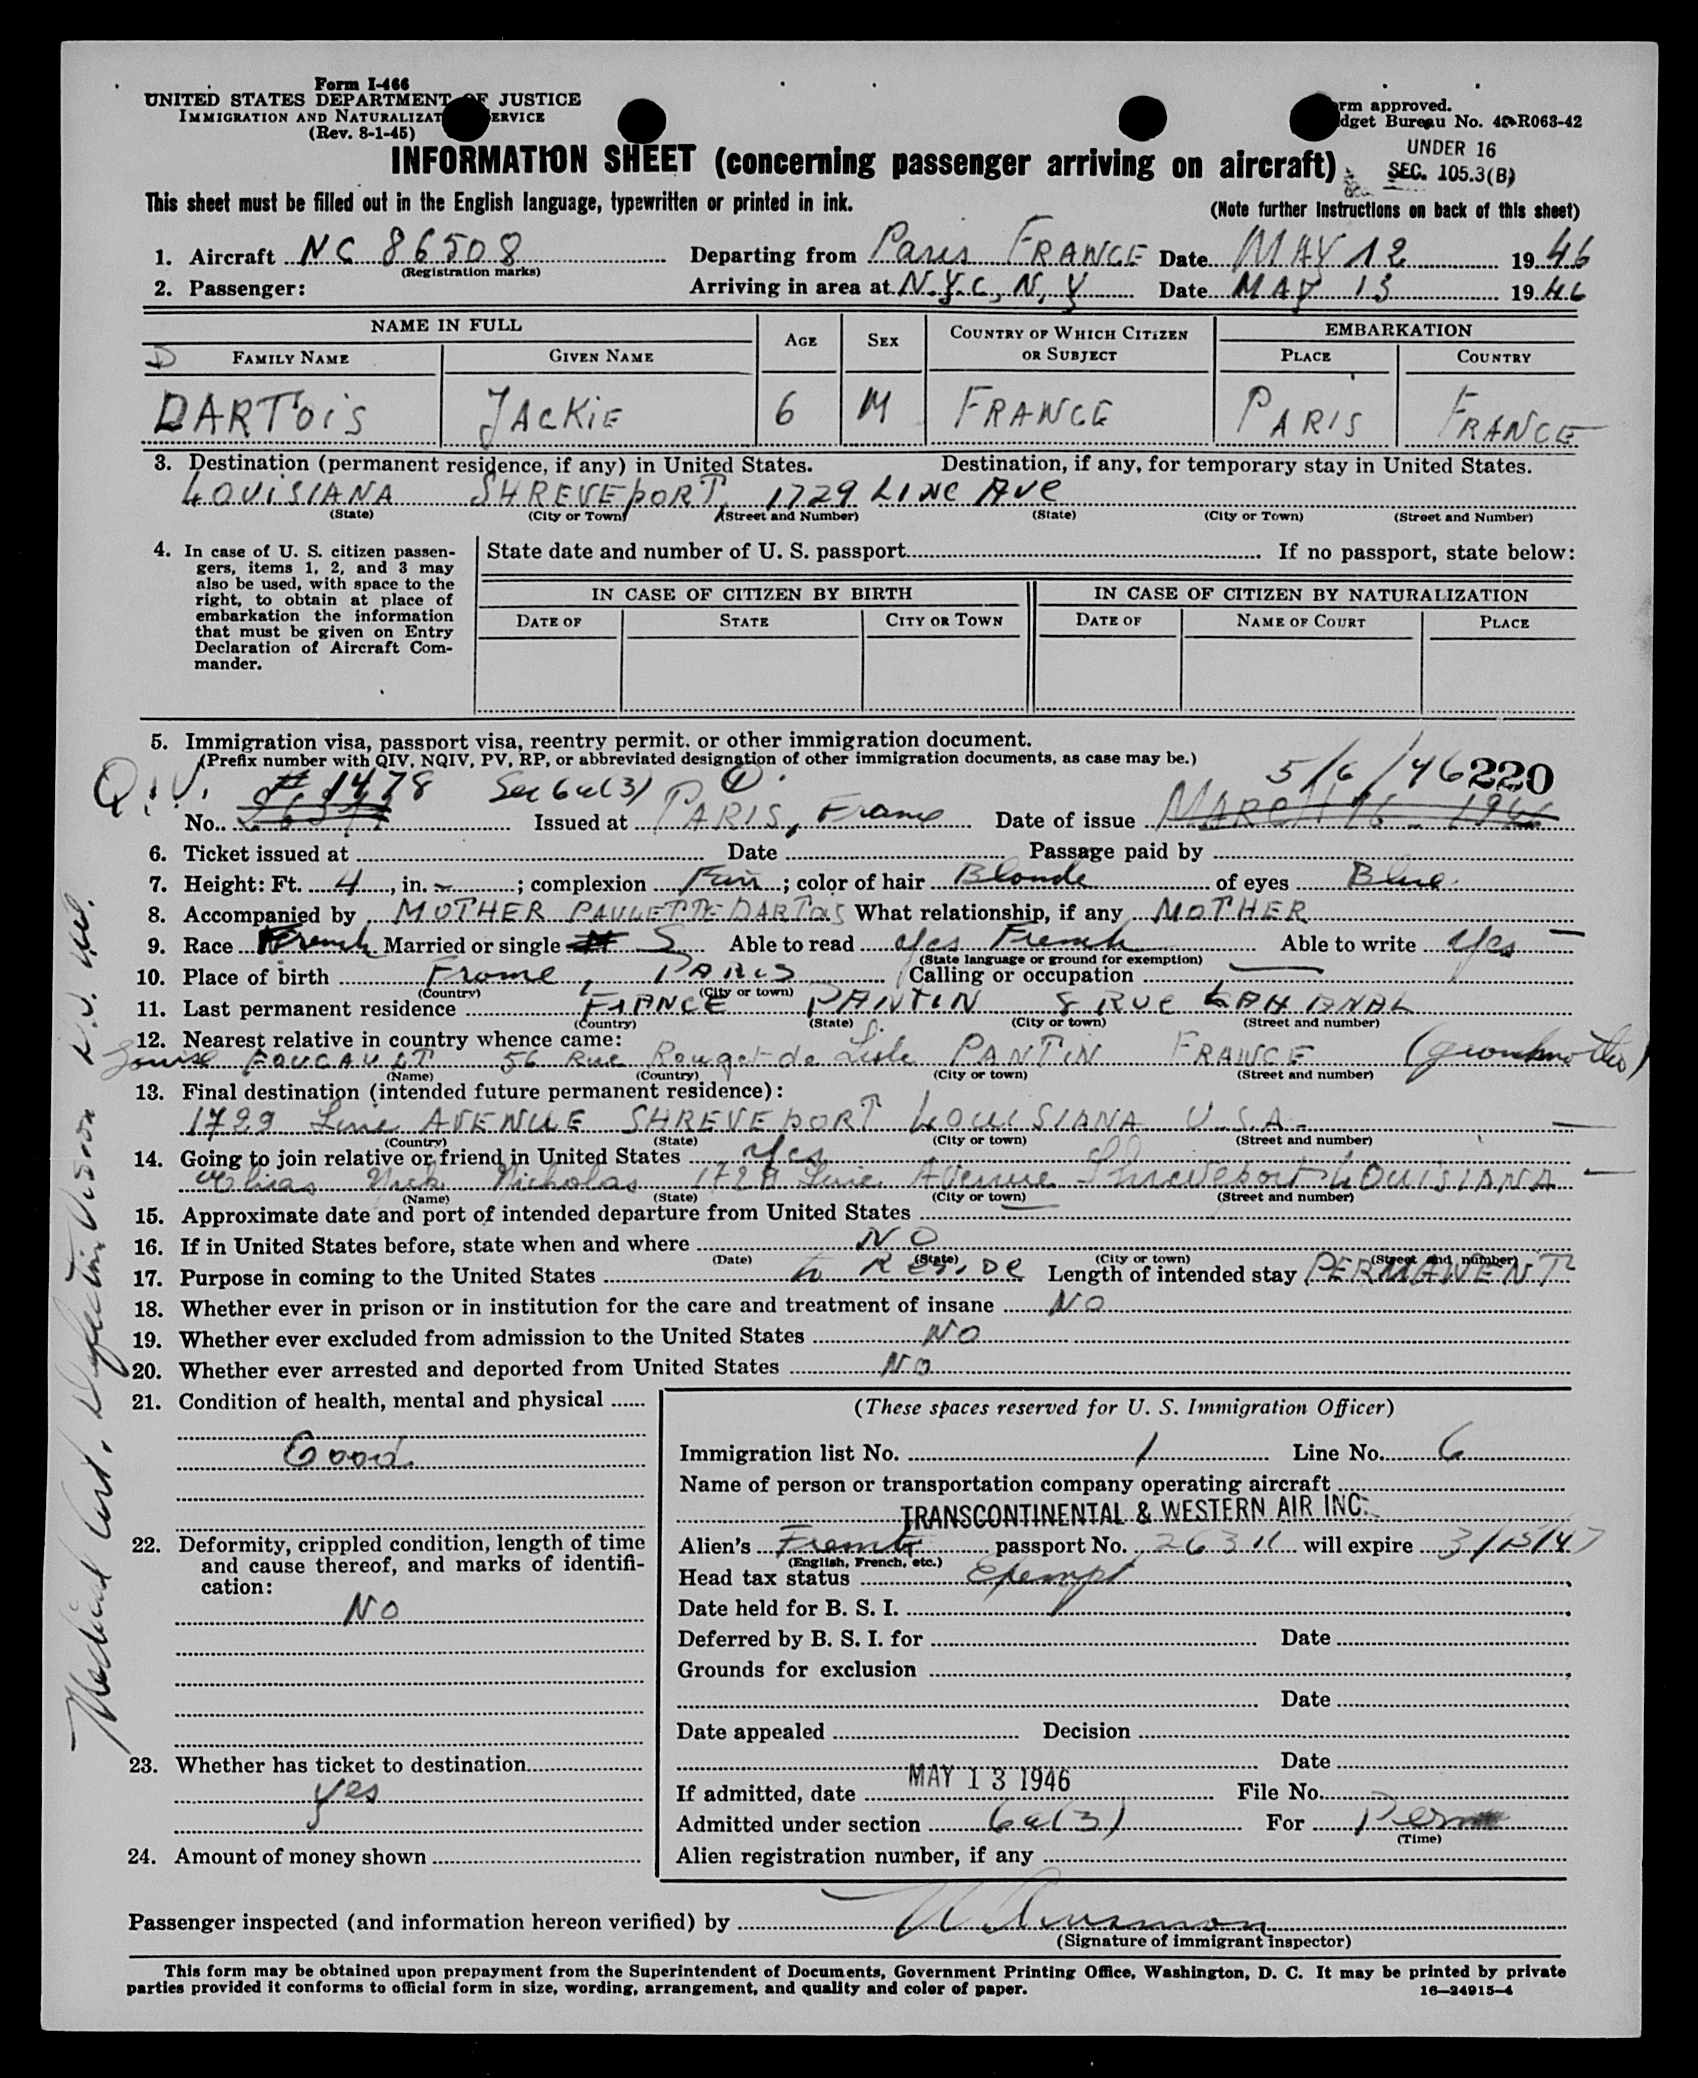 Form I-466
UNITED STATES DEPARTMENT OF JUSTICE
IMMIGRATION AND NATURALIZATION SERVICE
(Rev. 8-1-45)
Form approved.
Budget Bureau No. 43-R063-42
UNDER 16
SEC. 105.3(B)
INFORMATION SHEET (concerning passenger arriving on aircraft)
This sheet must be filled out in the English language, typewritten or printed in ink.
(Note further instructions on back of this sheet)
1. Aircraft NC 86508 Departing from Paris FRANCE Date MAY 12 1946
(Registration marks)
2. Passenger: Arriving in area at N.Y.C, N, Y Date MAY 13 1946
NAME IN FULL AGE SEX COUNTRY OF WHICH CITIZEN OR SUBJECT EMBARKATION
D FAMILY NAME GIVEN NAME PLACE COUNTRY
DARTOIS JACKIE 6 M FRANCE PARIS FRANCE
3. Destination (permanent residence, if any) in United States. Destination, if any, for temporary stay in United States.
LOUISIANA SHREVEPORT, 1729 LINE AVE
(State) (City or Town) (Street and Number) (State) (City or Town) (Street and Number)
4. In case of U. S. citizen passengers, items 1, 2, and 3 may also be used, with space to the right, to obtain at place of embarkation the information that must be given on Entry Declaration of Aircraft Commander.
State date and number of U. S. passport If no passport, state below:
IN CASE OF CITIZEN BY BIRTH IN CASE OF CITIZEN BY NATURALIZATION
DATE OF STATE CITY OR TOWN DATE OF NAME OF COURT PLACE
5. Immigration visa, passport visa, reentry permit, or other immigration document.
(Prefix number with QIV, NQIV, PV, RP, or abbreviated designation of other immigration documents, as case may be.)
Q.I.V. # 1478 Sec 6a(3) 5/6/46 220
No. Issued at PARIS, France Date of issue MARCH 16 1946
6. Ticket issued at Date Passage paid by
7. Height: Ft. 4, in. –; complexion Fair; color of hair Blonde of eyes Blue
8. Accompanied by MOTHER PAULETTE DARTOIS What relationship, if any MOTHER
9. Race French Married or single S Able to read yes French Able to write yes
(State language or ground for exemption)
10. Place of birth France, PARIS Calling or occupation —
(Country) (City or town)
11. Last permanent residence FRANCE PANTIN 8 RUE LAKANAL
(Country) (State) (City or town) (Street and number)
12. Nearest relative in country whence came:
Louise FOUCAULT 56 Rue Rouget de Lisle PANTIN FRANCE (grandmother)
(Name) (Country) (City or town) (Street and number)
13. Final destination (intended future permanent residence):
1729 Line AVENUE SHREVEPORT LOUISIANA U.S.A.
(Country) (State) (City or town) (Street and number)
14. Going to join relative or friend in United States yes
Nick Nicholas 1729 Line Avenue Shreveport LOUISIANA
(Name) (State) (City or town) (Street and number)
15. Approximate date and port of intended departure from United States
16. If in United States before, state when and where NO
(Date) (State) (City or town) (Street and number)
17. Purpose in coming to the United States to RESIDE Length of intended stay PERMANENT
18. Whether ever in prison or in institution for the care and treatment of insane NO
19. Whether ever excluded from admission to the United States NO
20. Whether ever arrested and deported from United States NO
21. Condition of health, mental and physical
Good
22. Deformity, crippled condition, length of time and cause thereof, and marks of identification:
NO
23. Whether has ticket to destination
yes
24. Amount of money shown
(These spaces reserved for U. S. Immigration Officer)
Immigration list No. 1 Line No. 6
Name of person or transportation company operating aircraft
TRANSCONTINENTAL & WESTERN AIR INC.
Alien's French passport No. 26311 will expire 3/15/47
(English, French, etc.)
Head tax status Exempt
Date held for B. S. I.
Deferred by B. S. I. for Date
Grounds for exclusion
Date
Date appealed Decision
Date
If admitted, date MAY 13 1946 File No.
Admitted under section 6a(3) For Perm
(Time)
Alien registration number, if any
Passenger inspected (and information hereon verified) by
(Signature of immigrant inspector)
This form may be obtained upon prepayment from the Superintendent of Documents, Government Printing Office, Washington, D. C. It may be printed by private
parties provided it conforms to official form in size, wording, arrangement, and quality and color of paper. 16—24915-4
Medical Cert. Defective Vision